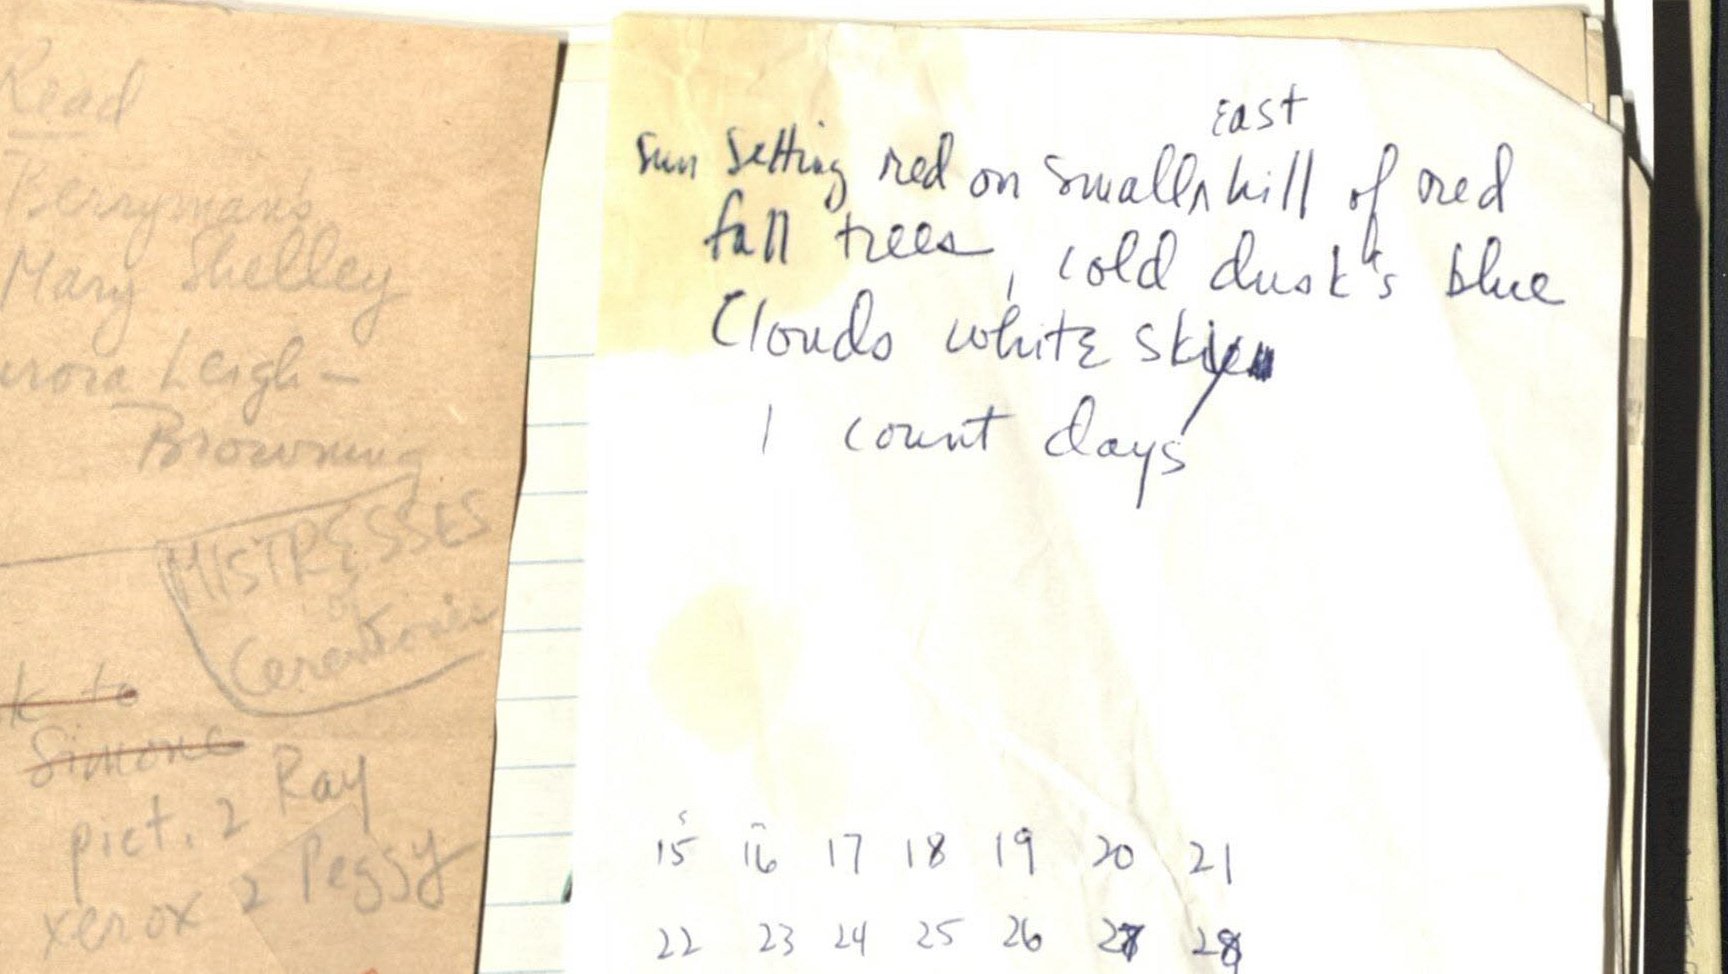 Read
Berryman's
Mary Shelley
urora Leigh –
Browning
MISTRESSES
of
Ceremonies
k to
Simone
pict. 2 Ray
xerox 2 Peggy
East
Sun Setting red on small hill of red
fall trees, cold dusk's blue
Clouds white sky
I count days
15 16 17 18 19 20 21
22 23 24 25 26 27 28